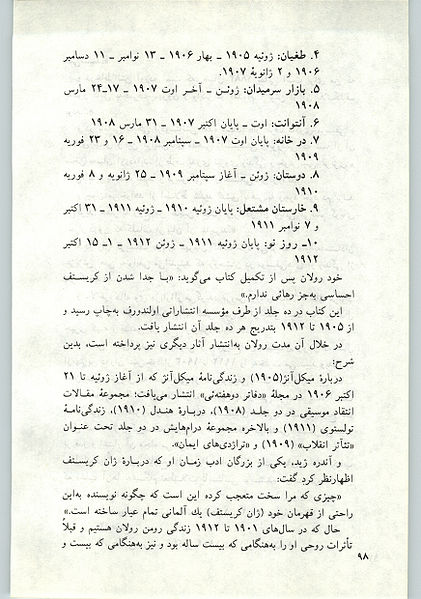 ۴. طغیان: ژوئیه ۱۹۰۵ ـ بهار ۱۹۰۶ ـ ۱۳ نوامبر ـ ۱۱ دسامبر
۱۹۰۶ و ۲ ژانویهٔ ۱۹۰۷.
۵. بازار سرمیدان: ژوئـن ـ آخـر اوت ۱۹۰۷ ـ ۱۷ـ۲۴ مارس
۱۹۰۸
۶. آنتوانت: اوت ـ پایان اکتبر ۱۹۰۷ ـ ۳۱ مارس ۱۹۰۸
۷. در خانه: پایان اوت ۱۹۰۷ ـ سپتامبر ۱۹۰۸ ـ ۱۶ و ۲۳ فوریه
۱۹۰۹
۸. دوستان: ژوئن ـ آغاز سپتامبر ۱۹۰۹ ـ ۲۵ ژانویه و ۸ فوریه
۱۹۱۰
۹. خارستان مشتعل: پایان ژوئیه ۱۹۱۰ ـ ژوئیه ۱۹۱۱ ـ ۳۱ اکتبر
و ۷ نوامبر ۱۹۱۱
۱۰ـ روز نو: پایان ژوئیه ۱۹۱۱ ـ ژوئن ۱۹۱۲ ـ ۱ـ ۱۵ اکتبر
۱۹۱۲
خود رولان پس از تکمیل کتاب می‌گوید: «بـا جدا شدن از کریستـف
احساسی به‌جز رهائی ندارم.»
این کتاب در ده جلد از طرف مؤسسه انتشاراتی اولندورف به‌چاپ رسید و
از ۱۹۰۵ تا ۱۹۱۲ بتدریج هر ده جلد آن انتشار یافت.
در خلال آن مدت رولان به‌انتشار آثار دیگری نیز پرداخته است، بدین
شرح:
دربارهٔ میکل‌آنژ(۱۹۰۵) و زندگی‌نامهٔ میکل‌آنژ که از آغاز ژوئیه تا ۲۱
اکتبر ۱۹۰۶ در مجلهٔ «دفاتر دوهفته‌ئی» انتشار می‌یافت؛ مجموعهٔ مقـالات
انتقاد موسیقی در دو جلـد (۱۹۰۸)، دربـارهٔ هنـدل (۱۹۱۰)، زندگی‌نامـهٔ
تولستوی (۱۹۱۱) و بالاخره مجموعهٔ درام‌هایش در دو جلد تحت عنـوان
«تئاتر انقلاب» (۱۹۰۹) و «تراژدی‌های ایمان».
و آندره ژید، یکی از بزرگان ادب زمـان او که دربـارهٔ ژان کریستـف
اظهارنظر کرد گفت:
«چیزی که مرا سخت متعجب کرده این است که چگونه نویسنده به‌این
راحتی از قهرمان خود (ژان کریستف) یك آلمانی تمام عیار ساخته است.»
حال که در سال‌های ۱۹۰۱ تا ۱۹۱۲ زندگی رومن رولان هستیم و قبلاً
تأثرات روحی او را به‌هنگامی که بیست ساله بود و نیز به‌هنگامی که بیست و
۹۸